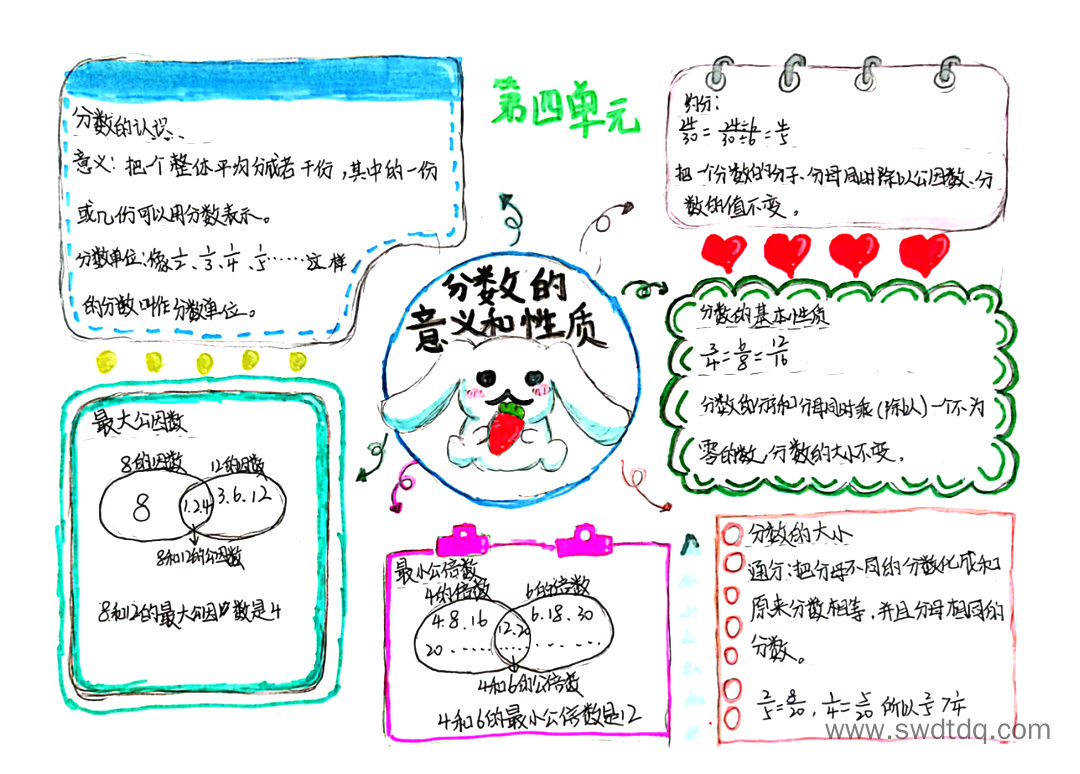 第四单元
分数的
意义和性质
分数的认识、
意义：把个整体平均分成若干份，其中的一份
或几份可以用分数表示。
分数单位、像1/2、1/3、1/4、1/5……这样
的分数叫作分数单位。
最大公因数
8的因数 12的因数
8 1.2.4 3.6.12
8和12的公因数
8和12的最大公因数是4
最小公倍数
4的倍数 6的倍数
4.8.16 12.20 6.18.30
20
4和6的公倍数
4和6的最小公倍数是12
约分：
把一个分数的分子、分母同时除以公因数、分
数的值不变。
分数的基本性质
3/4=6/8=12/16
分数的分子和分母同时乘(除以)一个不为
零的数，分数的大小不变，
分数的大小
通分：把分母不同的分数化成和
原来分数相等，并且分母相同的
分数。
2/5=8/20，1/4=5/20 所以2/5>1/4
www.swdtdq.com